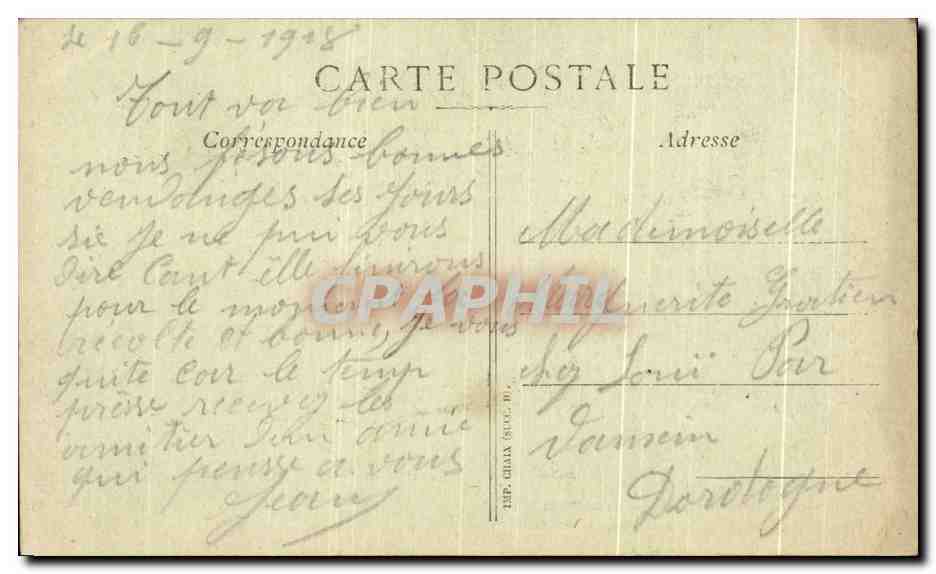 le 16-9-1918
CARTE POSTALE
Tout va bien
Correspondance
nous fesons bonnes
vendanges ses jours
sie je ne pui vous
dire cant élle finirons
pour le moment la
récolte et bonne, je vous
quite car le temp
présse recevez les
amitier d'un amie
qui pensse a vous
Jean
Adresse
Mademoiselle
Marguerite Gratien
chez Par
Dordogne
IMP. CHAIX (SUCC. B).
CPAPHIL